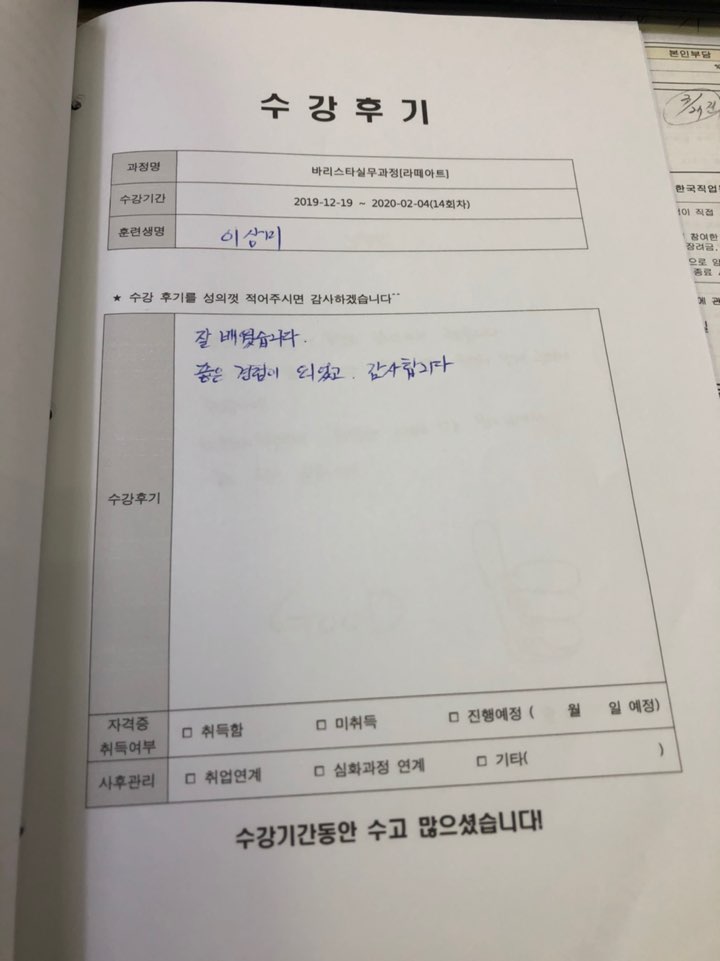 수강후기
과정명 바리스타실무과정[라떼아트]
수강기간 2019-12-19 ~ 2020-02-04(14회차)
훈련생명 이상미
★ 수강 후기를 성의껏 적어주시면 감사하겠습니다^^
잘 배웠습니다.
좋은 경험이 되었고. 감사합니다
수강후기
자격증
취득여부
□ 취득함 □ 미취득 □ 진행예정 ( 월 일 예정)
사후관리 □ 취업연계 □ 심화과정 연계 □ 기타( )
수강기간동안 수고 많으셨습니다!
본인부담
한국직업
직접
참여한
장려금,
으로
종료
에 관